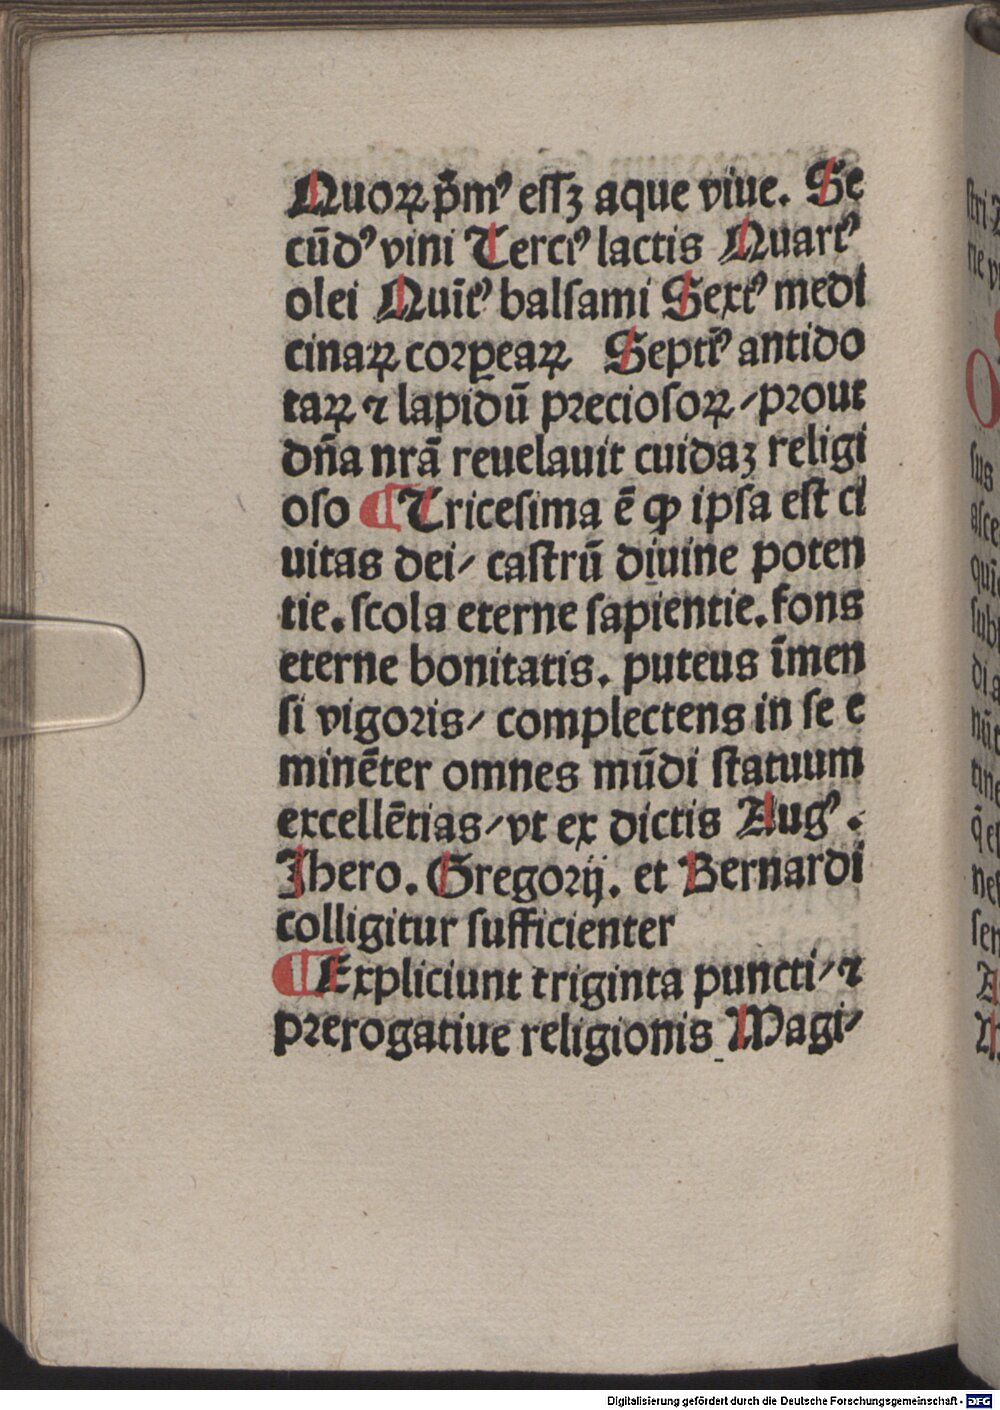 Quoꝝ pͥmꝰ eſſꝫ aque viue. Se
cūdꝰ vini Terciꝰ lactis Quartꝰ
olei Quītꝰ balſami Sextꝰ medi
cinaꝝ corꝑeaꝝ Septīꝰ antido
taꝝ ⁊ lapidū precioſoꝝ / prout
dn̄a nr̄ā reuelauit cuidaꝫ religi
oſo ¶ Triceſima ē ꝙ ipſa eſt ci
uitas dei / caſtrū diuine poten
tie. ſcola eterne ſapientie. fons
eterne bonitatis. puteus īmen
ſi vigoris / complectens in ſe e
minēter omnes mūdi ſtatuum
excellētias / vt ex dictis Augꝰ.
Jhero. Gregorij. et Bernardi
colligitur ſufficienter
¶ Expliciunt triginta puncti / ⁊
prerogatiue religionis Magi/
ſtri
ſus
aſce
quī
ſubi
Digitalisierung gefördert durch die Deutsche Forschungsgemeinschaft - DFG